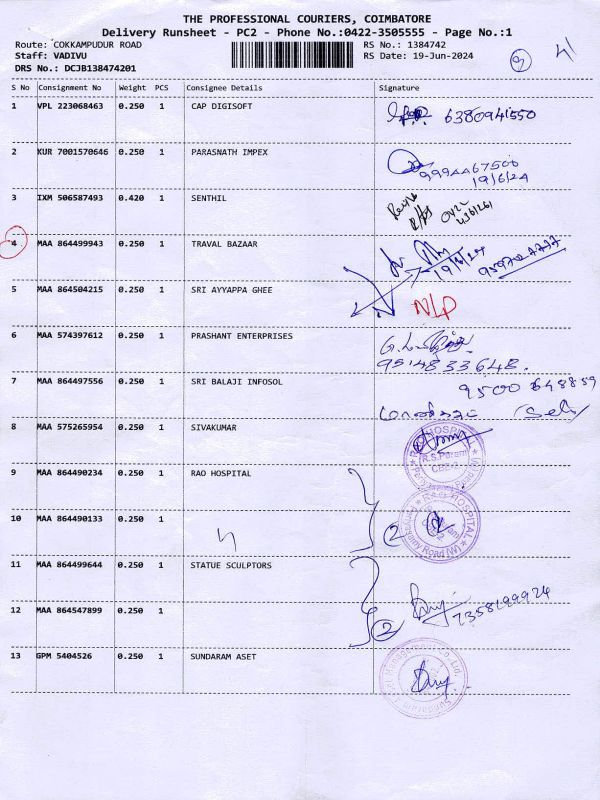 THE PROFESSIONAL COURIERS, COIMBATORE
Delivery Runsheet - PC2 - Phone No.:0422-3505555 - Page No.:1
Route: COKKAMPUDUR ROAD
RS No.: 1384742
Staff: VADIVU
RS Date: 19-Jun-2024
DRS No.: DCJB138474201
S No Consignment No Weight PCS Consignee Details Signature
1 VPL 223068463 0.250 1 CAP DIGISOFT 6380941550
2 KUR 7001570646 0.250 1 PARASNATH IMPEX
19/6/24
3 IXM 506587493 0.420 1 SENTHIL
4 MAA 864499943 0.250 1 TRAVAL BAZAAR
19/6/24
5 MAA 864504215 0.250 1 SRI AYYAPPA GHEE
NLP
6 MAA 574397612 0.250 1 PRASHANT ENTERPRISES
9514833648.
7 MAA 864497556 0.250 1 SRI BALAJI INFOSOL
9500648859
8 MAA 575265954 1 0.250 SIVAKUMAR
RAO HOSPITAL
R.S. Puram
9 MAA 864490234 0.250 1 RAO HOSPITAL
RAO HOSPITAL
10 MAA 864490133 0.250 1
2
11 MAA 864499644 0.250 1 STATUE SCULPTORS
12 MAA 864547899 0.250 1
2
7358199924
13 GPM 5404526 0.250 1 SUNDARAM ASET